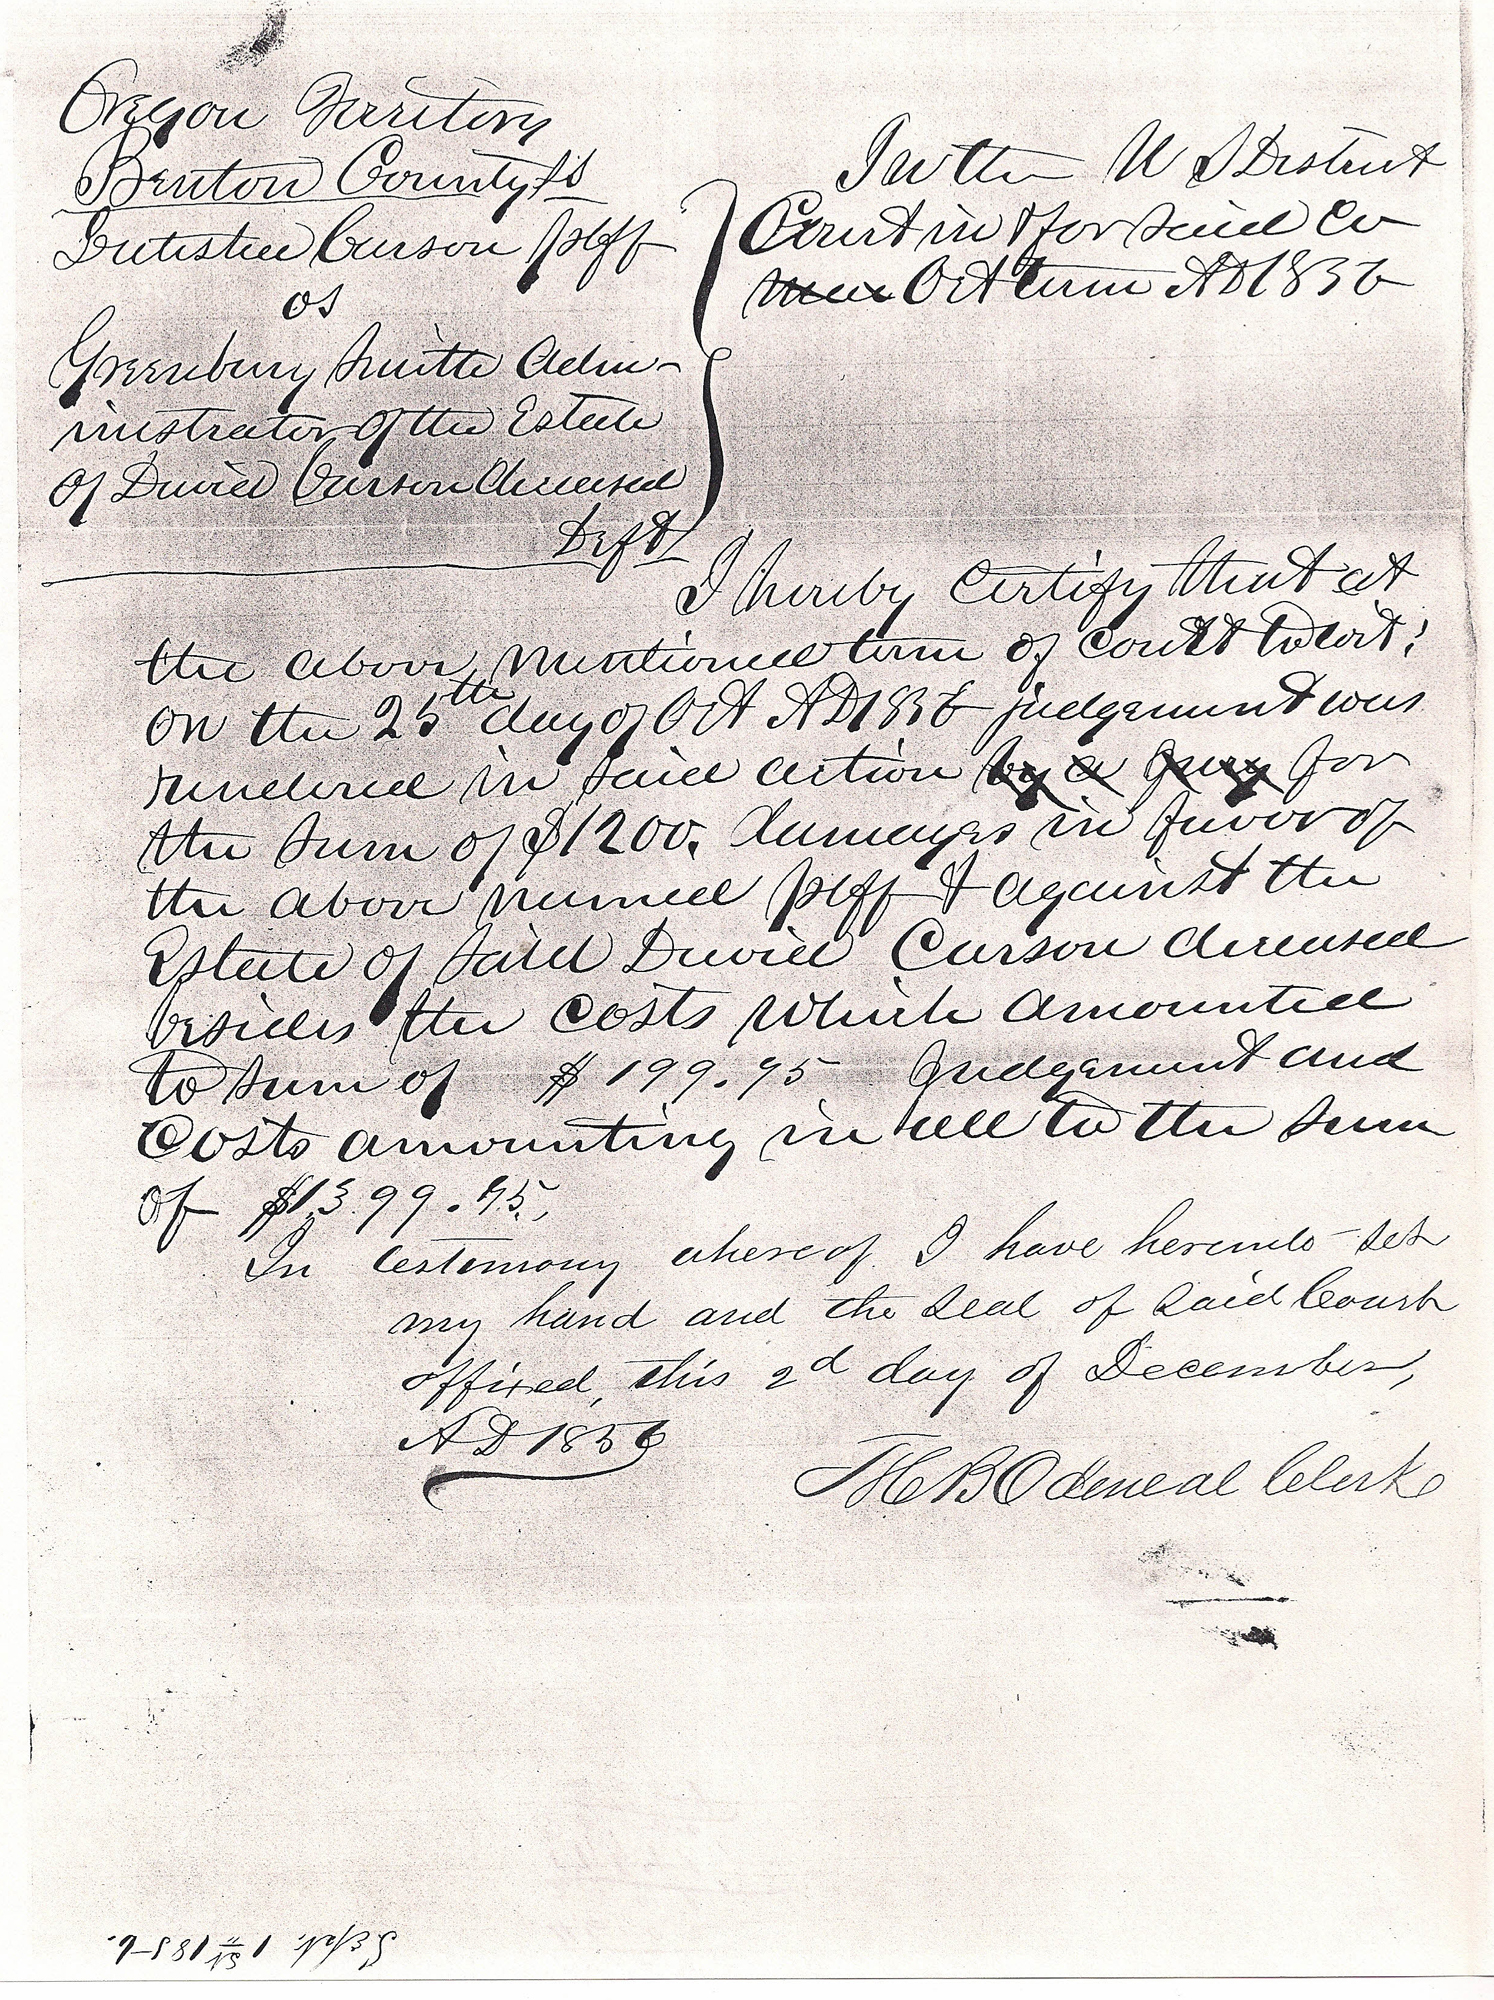 Oregon Territory
Benton County ss
Letitia Carson plff
vs
Greenbury Smith Adm-
inistrator of the Estate
of David Carson deceased
Deft
In the U S District
Court in & for said Co
Oct term AD 1856
I hereby certify that at
the above mentioned term of court towit;
on the 25th day of Oct AD 1856 judgement was
rendered in said action by a jury for
the sum of $1200. damages in favor of
the above named plff & against the
Estate of said David Carson deceased
besides the costs which amounted
to sum of $199.95 Judgement and
Costs amounting in all to the sum
of $1399.95,
In testimony whereof I have hereinto set
my hand and the seal of said Court
affixed, this 2d day of December,
AD 1856
T H B Odeneal Clerk
Sept. 1st 1856.